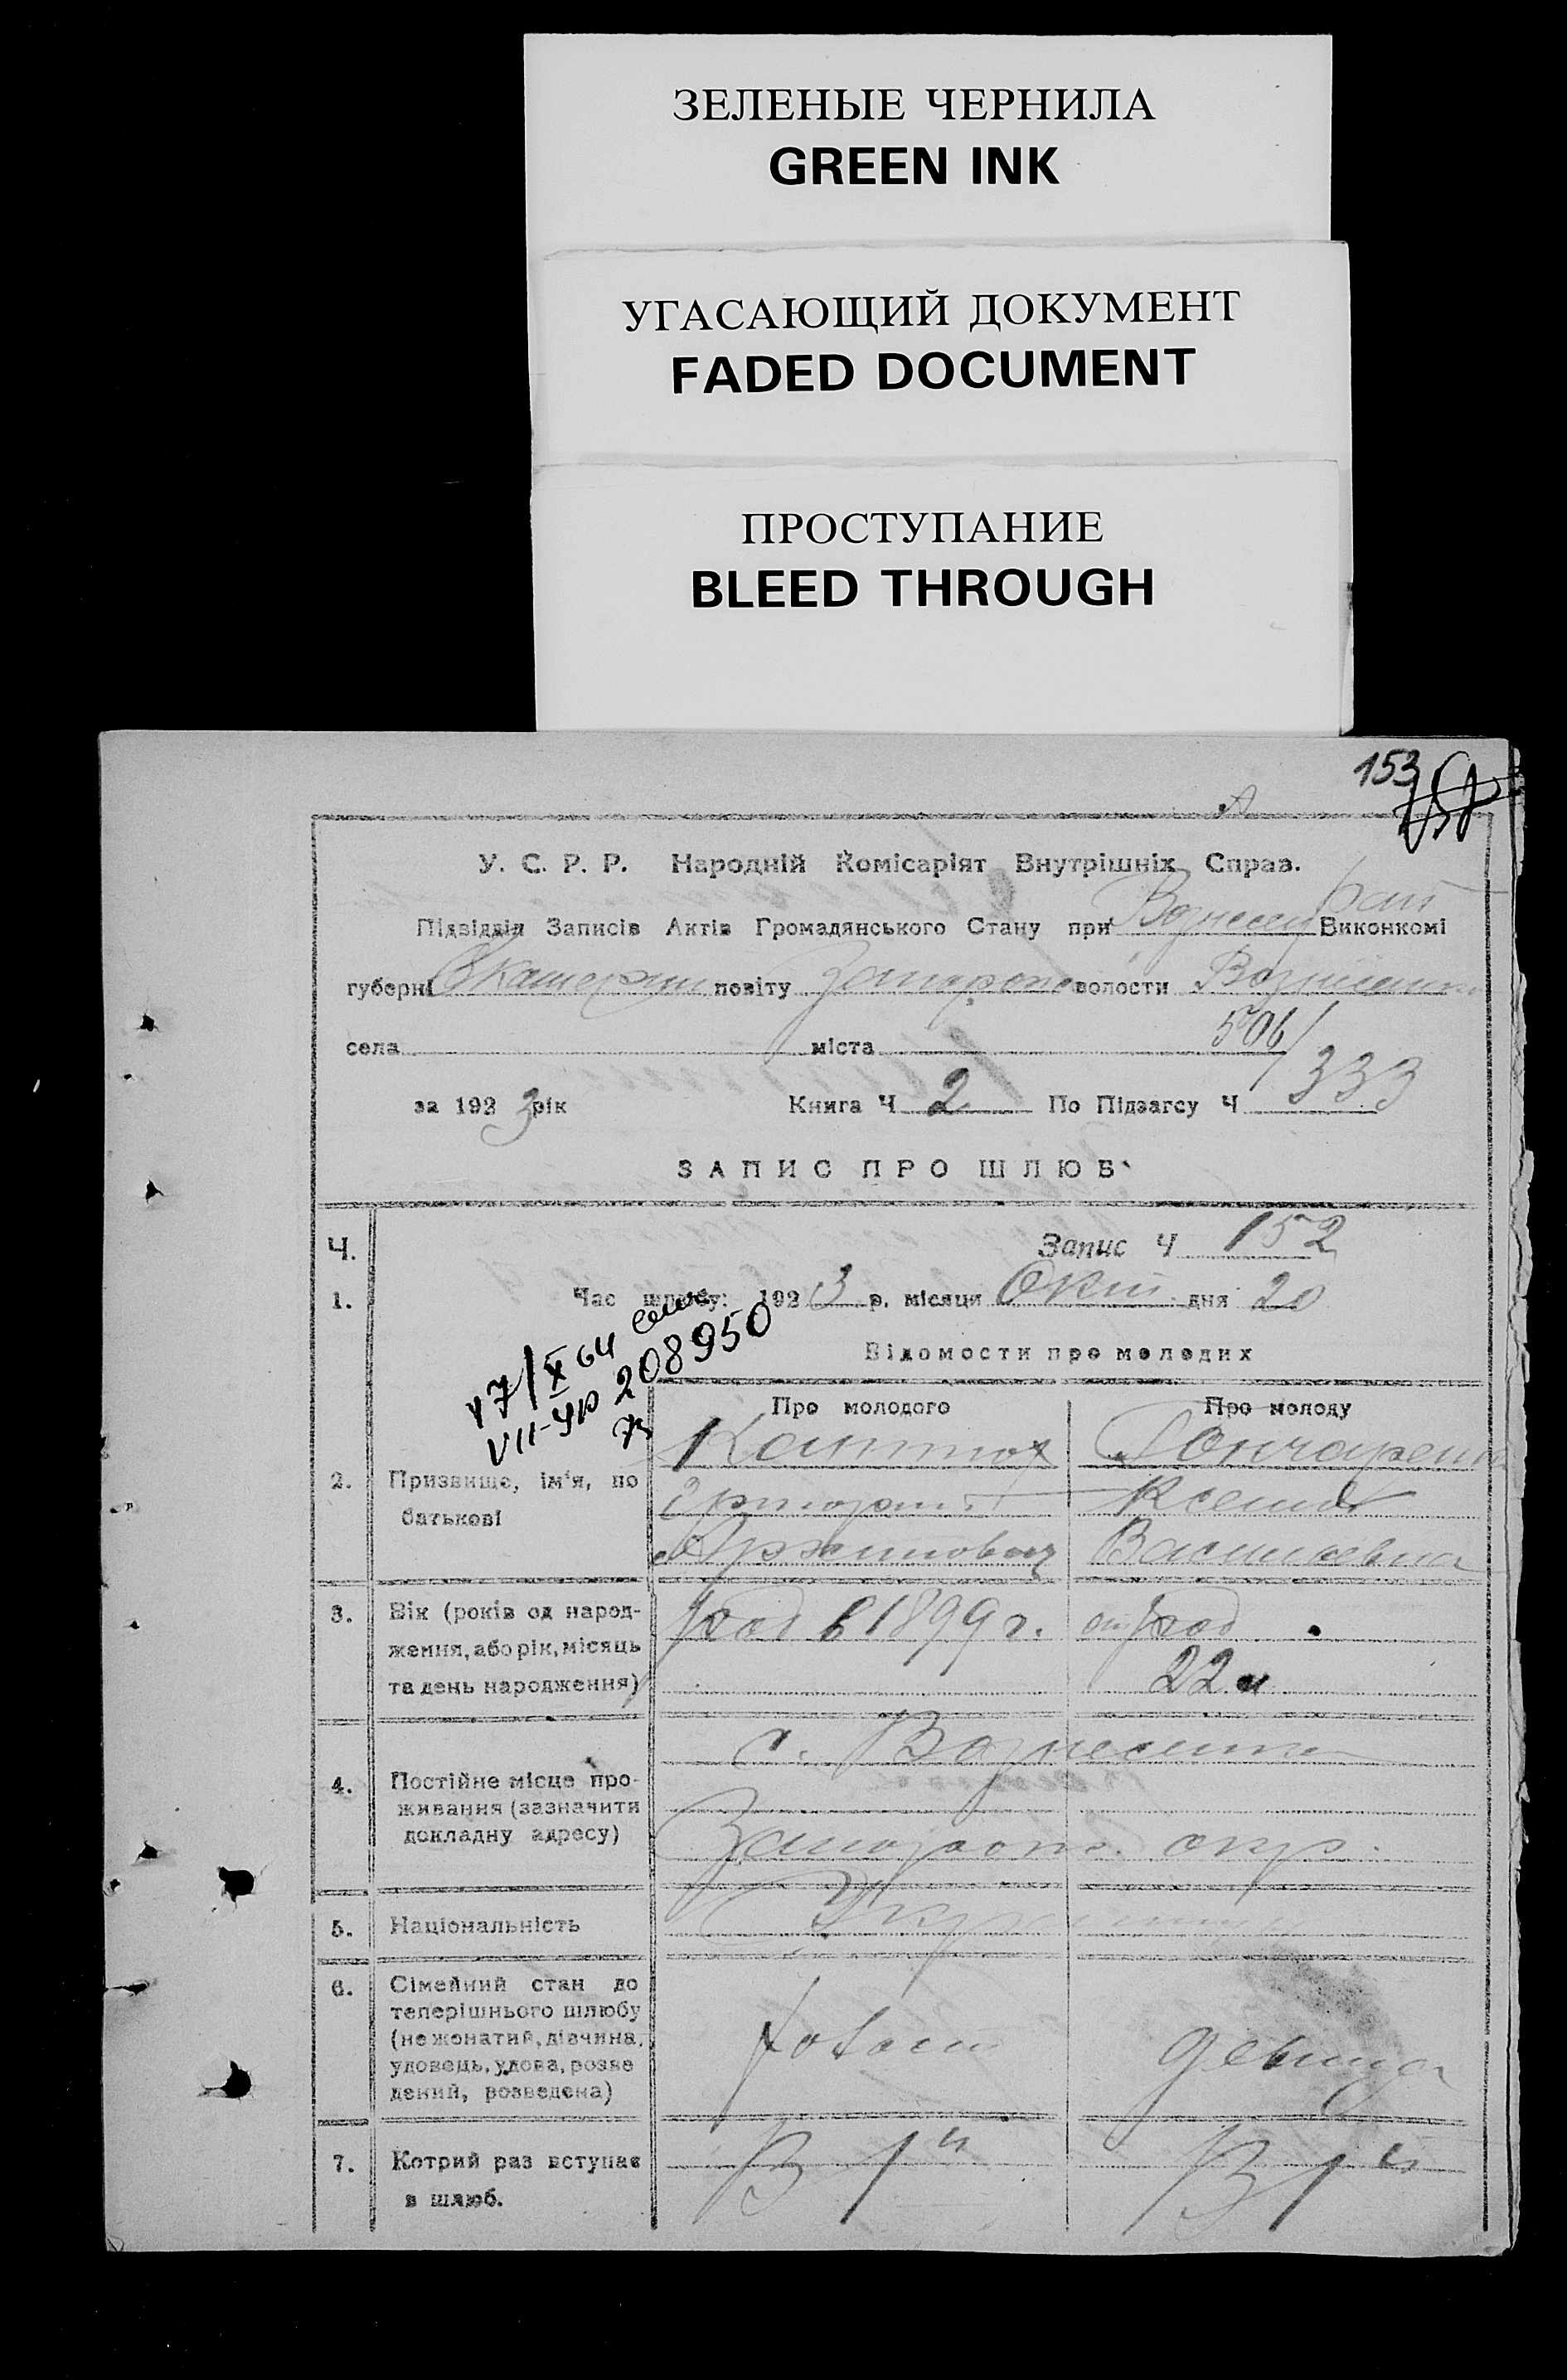 ЗЕЛЕНЫЕ ЧЕРНИЛА
GREEN INK
УГАСАЮЩИЙ ДОКУМЕНТ
FADED DOCUMENT
ПРОСТУПАНИЕ
BLEED THROUGH
153
У. С. Р. Р. Народній Комісаріят Внутрішніх Справ.
Підвідділ Записів Актів Громадянського Стану при Виконкомі
губерні повіту волости
села міста 506/
за 1923 рік Книга Ч 2 По Підзагсу Ч 333
ЗАПИС ПРО ШЛЮБ
Ч. Запис Ч 152
1. Час шлюбу: 1923 р. місяця Окт дня 20
17/X 64
VII-ЯР 208950
Відомости про молодих
Про молодого Про молоду
2. Призвище, ім'я, по
батькові
Ксения
Васильевна
3. Вік (років од народ-
ження, або рік, місяць
та день народження)
род в 1899 г. от род
22
4. Постійне місце про-
живання (зазначити
докладну адресу)
с. Вознесенка
окр.
5. Національність
6. Сімейний стан до
теперішнього шлюбу
(не жонатий, дівчина,
удовець, удова, розве
дений, розведена)
холост девица
7. Котрий раз вступає
в шлюб.
В 1й В 1й